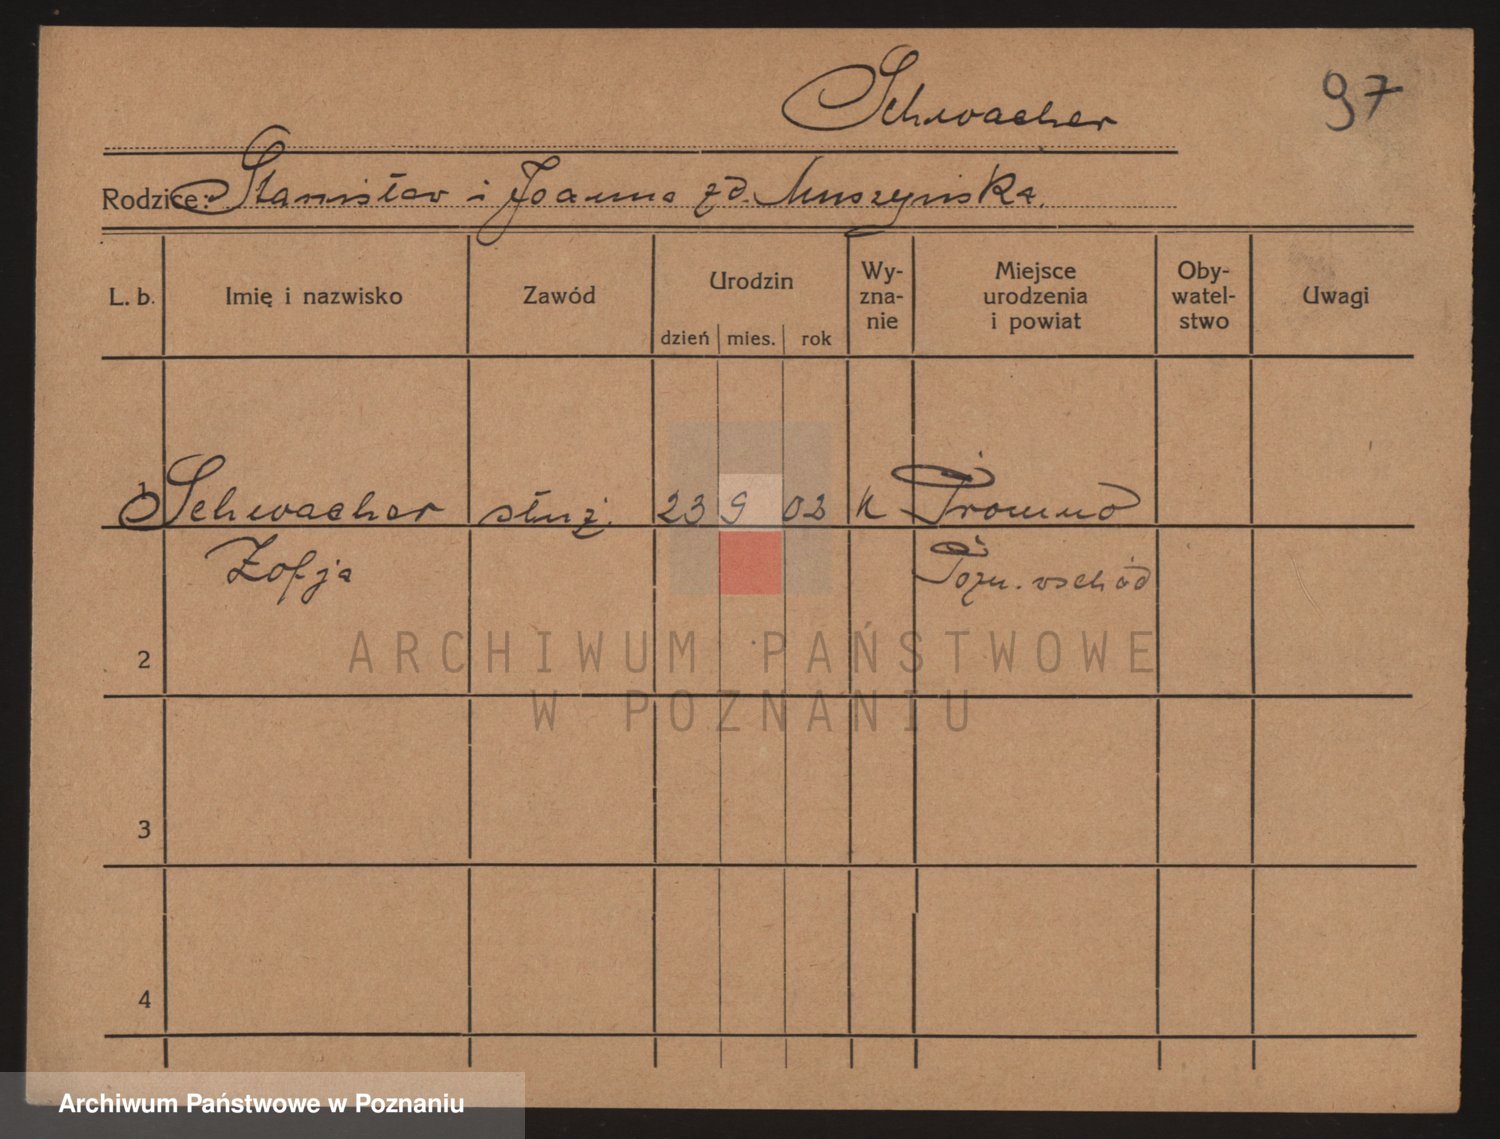 Schwacher 97
Rodzice: Stanisław i Joanna zd. Muszyńska.
L. b. Imię i nazwisko Zawód Urodzin Wy-zna-nie Miejsce urodzenia i powiat Oby-watel-stwo Uwagi
dzień mies. rok
1 Schwacher służ. 23 9 02 K Promno
Zofja Pozn. wschód
2
ARCHIWUM PAŃSTWOWE
W POZNANIU
3
4
Archiwum Państwowe w Poznaniu